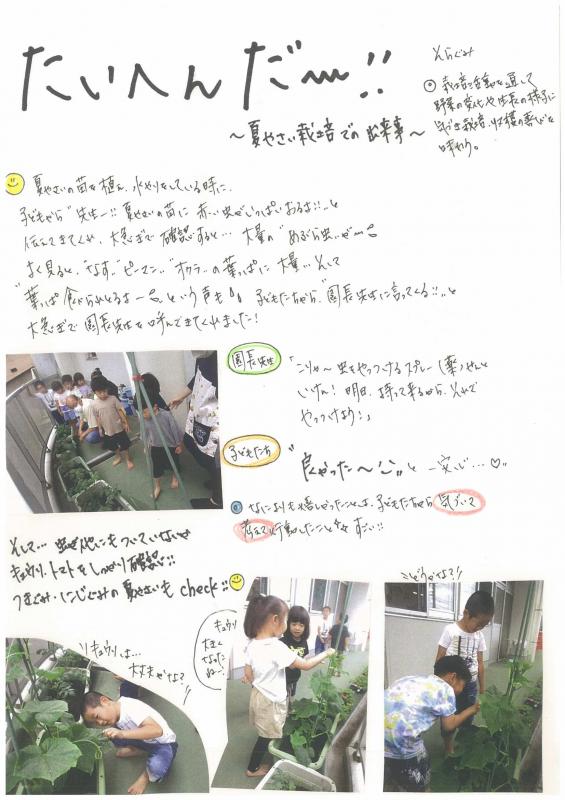 たいへんだ〜!!
〜夏やさい栽培での出来事〜
そらぐみ
◎ 栽培活動を通して
野菜の変化や生長の様子に
気づき栽培、収穫の喜びを
味わう。
夏やさいの苗を植え、水やりをしている時に、
子どもから"先生ー!! 夏やさいの苗に赤い虫がいっぱいおるよ!!"と
伝えてきてくれ、大急ぎで確認すると… 大量の"あぶら虫"が〜
よく見ると、"なす""ピーマン""オクラ"の葉っぱに大量…そして
"葉っぱ食べられとるよー"という声も 子どもたちから、"園長先生に言ってくる!!"と
大急ぎで園長先生を呼んできてくれました!
園長先生
「こりゃ〜虫をやっつけるスプレー(薬)せんと
いけん! 明日、持って来るから、それで
やっつけよう!」
子どもたち
"良かった〜"と一安心…♡
なによりも嬉しかったことは、子どもたちから気づいて
考えて行動したこと すごい!!
そして… 虫が他にもついていないか
キュウリ、トマトをしっかり確認!!
つきぐみ・にじぐみの夏やさいも check!!
キュウリは…
大丈夫かな?
キュウリ
大きく
なったね〜!
どうかな?